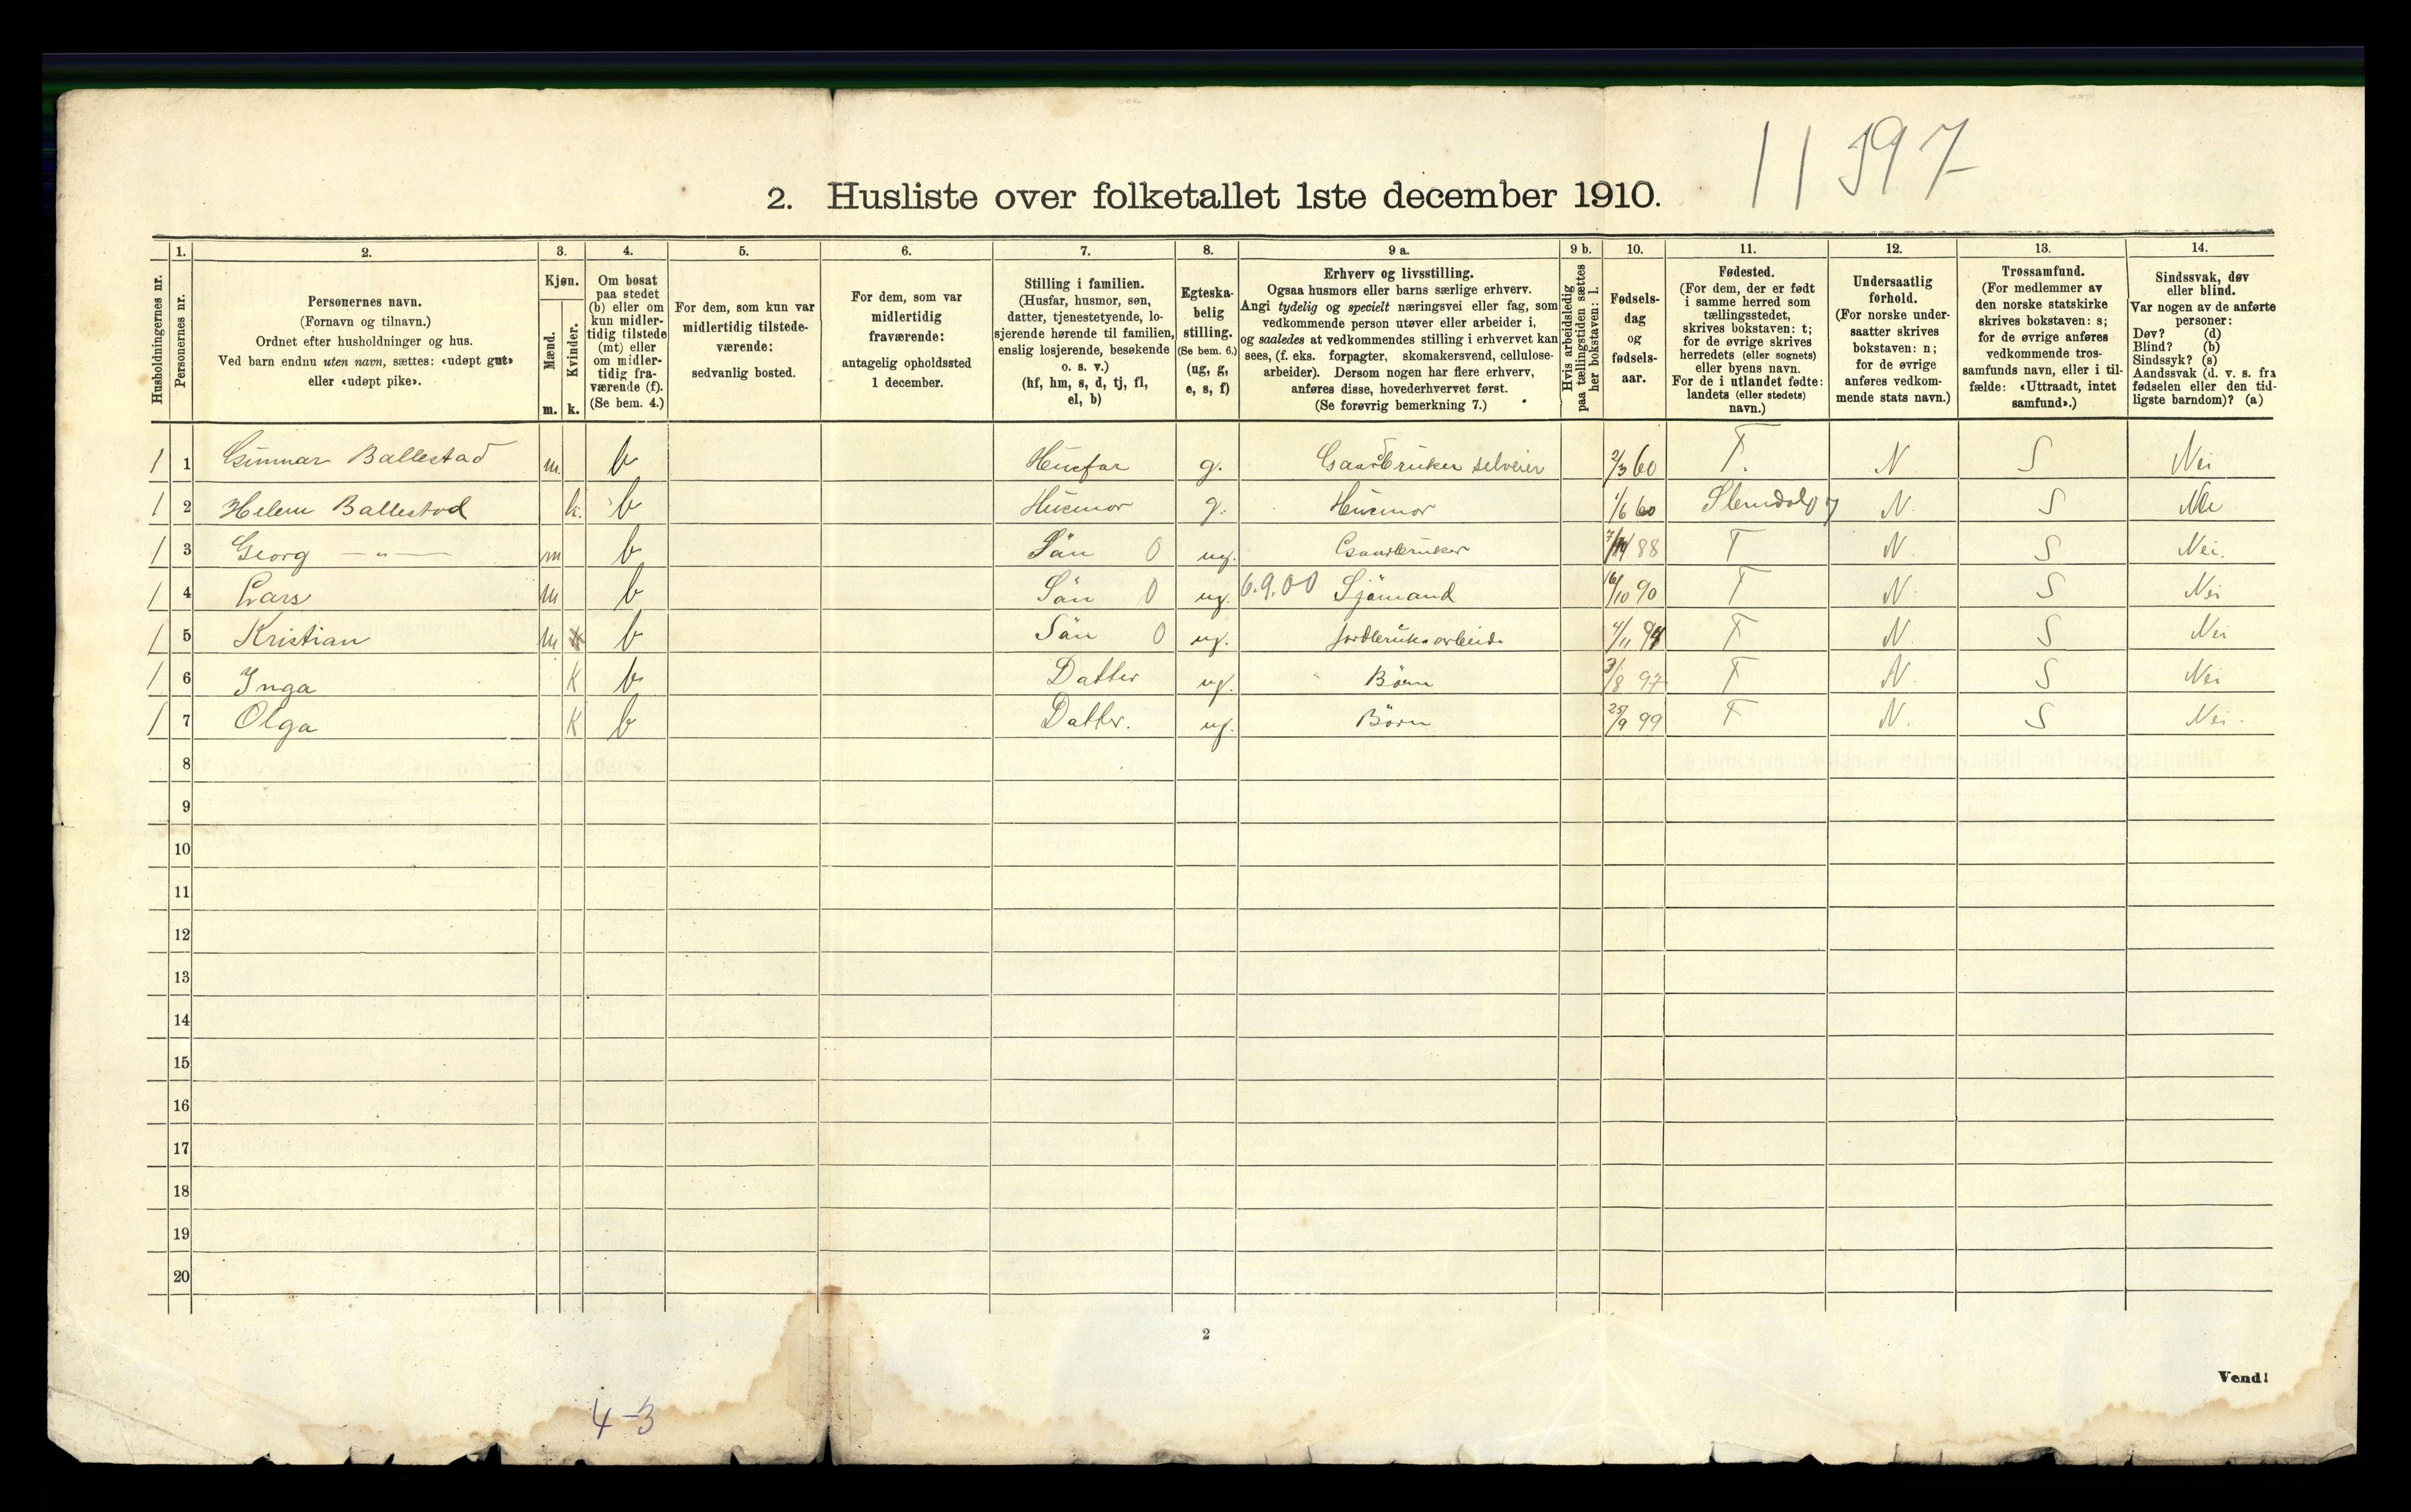 11 397
2. Husliste over folketallet 1ste december 1910.
Husholdningernes nr.
1.
Personernes nr.
2.
Personernes navn.
(Fornavn og tilnavn.)
Ordnet efter husholdninger og hus.
Ved barn endnu uten navn, sættes: «udøpt gut»
eller «udøpt pike».
3.
Kjøn.
Mænd.
Kvinder.
m. k.
4.
Om bosat
paa stedet
(b) eller om
kun midler-
tidig tilstede
(mt) eller
om midler-
tidig fra-
værende (f).
(Se bem. 4.)
5.
For dem, som kun var
midlertidig tilstede-
værende:
sedvanlig bosted.
6.
For dem, som var
midlertidig
fraværende:
antagelig opholdssted
1 december.
7.
Stilling i familien.
(Husfar, husmor, søn,
datter, tjenestetyende, lo-
sjerende hørende til familien,
enslig losjerende, besøkende
o. s. v.)
(hf, hm, s, d, tj, fl,
el, b)
8.
Egteska-
belig
stilling.
(Se bem. 6.)
(ug, g,
e, s, f)
9 a.
Erhverv og livsstilling.
Ogsaa husmors eller barns særlige erhverv.
Angi tydelig og specielt næringsvei eller fag, som
vedkommende person utøver eller arbeider i,
og saaledes at vedkommendes stilling i erhvervet kan
sees, (f. eks. forpagter, skomakersvend, cellulose-
arbeider). Dersom nogen har flere erhverv,
anføres disse, hovederhvervet først.
(Se forøvrig bemerkning 7.)
9 b.
Hvis arbeidsledig
paa tællingstiden sættes
her bokstaven: l.
10.
Fødsels-
dag
og
fødsels-
aar.
11.
Fødested.
(For dem, der er født
i samme herred som
tællingsstedet,
skrives bokstaven: t;
for de øvrige skrives
herredets (eller sognets)
eller byens navn.
For de i utlandet fødte:
landets (eller stedets)
navn.)
12.
Undersaatlig
forhold.
(For norske under-
saatter skrives
bokstaven: n;
for de øvrige
anføres vedkom-
mende stats navn.)
13.
Trossamfund.
(For medlemmer av
den norske statskirke
skrives bokstaven: s;
for de øvrige anføres
vedkommende tros-
samfunds navn, eller i til-
fælde: «Uttraadt, intet
samfund».)
14.
Sindssvak, døv
eller blind.
Var nogen av de anførte
personer:
Døv? (d)
Blind? (b)
Sindssyk? (s)
Aandssvak (d. v. s. fra
fødselen eller den tid-
ligste barndom)? (a)
1 1 Gunnar Ballestad m. b Husfar g. Gaardbruker selveier 2/3 60 T. N. S Nei
1 2 Helene Ballestad k. b Husmor g. Husmor 1/6 60 N. S Nei
1 3 Georg — " — m b Sön 0 ug. Gaardbruker 88 T N. S Nei.
1 4 Lars m b Sön 0 ug. 6.9.00 Sjömand 16/10 90 T N. S Nei
1 5 Kristian m b Sön 0 ug. Jordbruksarbeide 4/11 94 T N. S Nei
1 6 Inga K b Datter ug. Börn 3/8 97 T N. S Nei
1 7 Olga K b Datter. ug. Börn 25/9 99 T N. S Nei.
8
9
10
11
12
13
14
15
16
17
18
19
20
2
Vend!
4-3